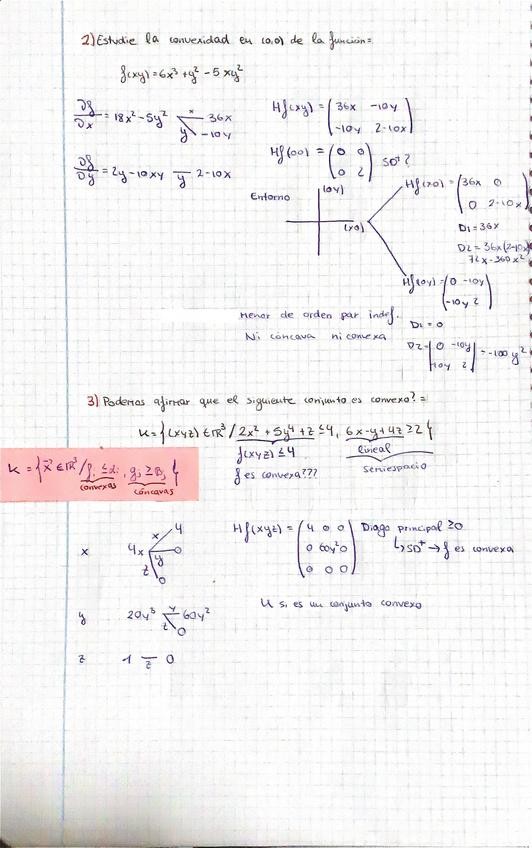 2) Estudie la convexidad en (0,0) de la función=
f(xy)=6x³+y²-5xy²
∂f/∂x = 18x²-5y² x 36x
y -10y
Hf(xy) = (36x -10y
-10y 2-10x)
∂f/∂y = 2y-10xy y 2-10x
Hf(00) = (0 0
0 2) SD⁺?
Entorno
(0y)
(x0)
Hf(x0) = (36x 0
0 2-10x)
D1=36x
D2=36x(2-10x)
72x-360x²
Hf(0y) = (0 -10y
-10y 2)
D1=0
D2=|0 -10y
-10y 2| = -100y²
Menor de orden par indef.
Ni concava ni convexa
3) Podemos afirmar que el siguiente conjunto es convexo?=
K={(xyz)∈ℝ³/2x²+5y⁴+z≤4, 6x-y+4z≥2}
f(xyz)≤4
lineal
f es convexa???
semiespacio
K={x⃗∈ℝ³/fi≤αi, gj≥Bj}
convexas
cóncavas
x 4x x 4
y 0
z 0
Hf(xyz) = (4 0 0
0 60y² 0
0 0 0)
Diago principal ≥0
↳SD⁺→f es convexa
y 20y³ y 60y²
z 0
K si es un conjunto convexo
z 1 z 0